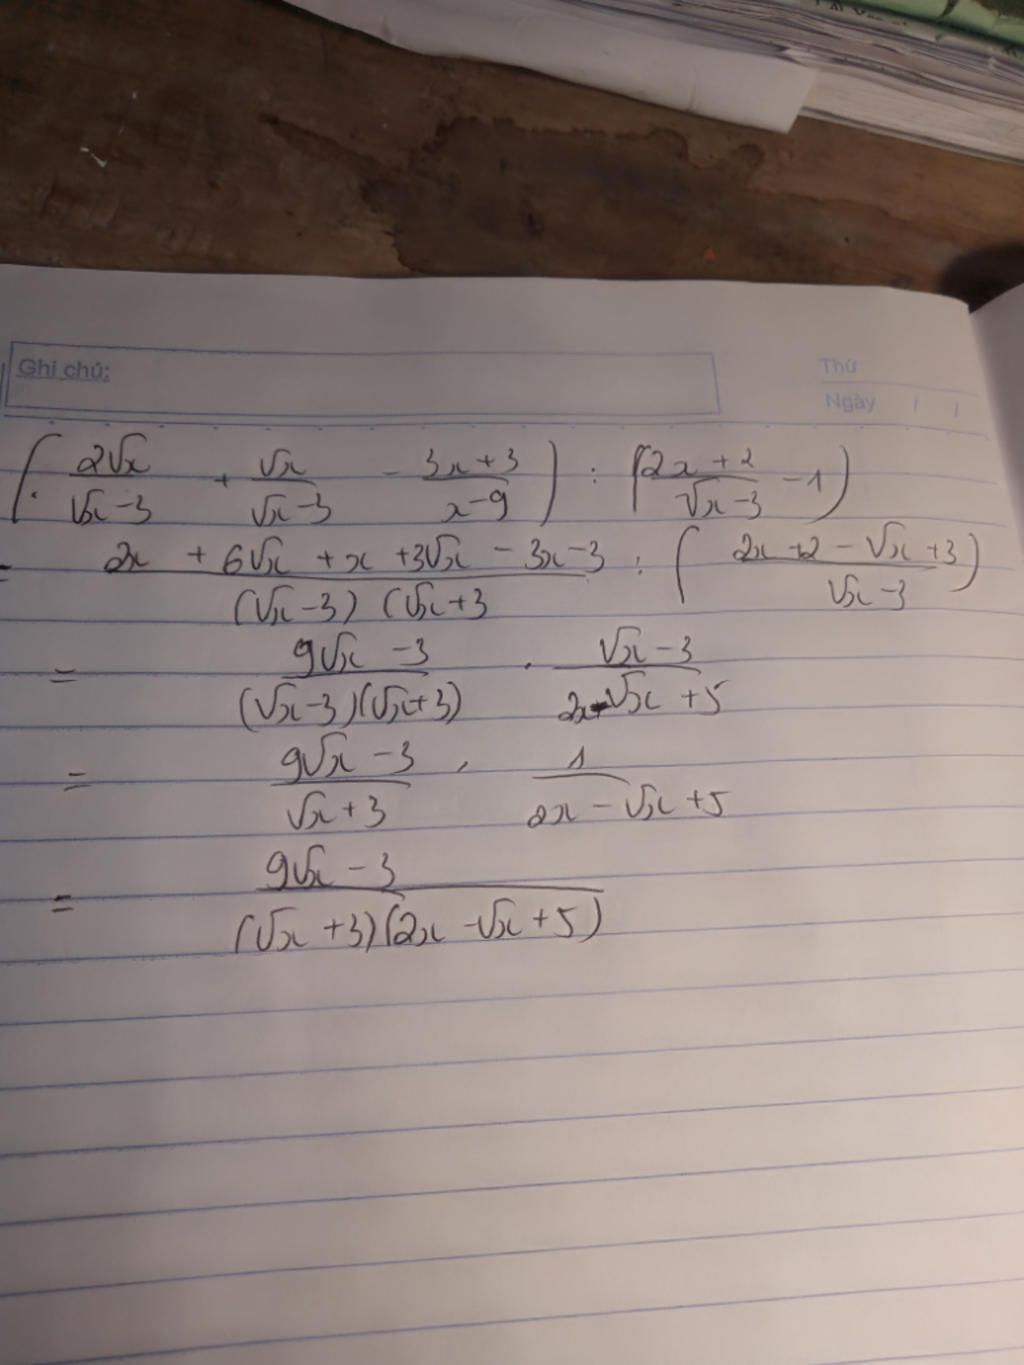 Ghi chú:
Thứ
Ngày / /
( 2√x / (√x - 3) + √x / (√x - 3) - (3x + 3) / (x - 9) ) : ( (2x + 2) / (√x - 3) - 1 )
= (2x + 6√x + x + 3√x - 3x - 3) / (√x - 3) (√x + 3 : ( (2x + 2 - √x + 3) / (√x - 3) )
= (9√x - 3) / (√x - 3)(√x + 3) . (√x - 3) / (2x - √x + 5)
= (9√x - 3) / (√x + 3) . 1 / (2x - √x + 5)
= (9√x - 3) / (√x + 3)(2x - √x + 5)